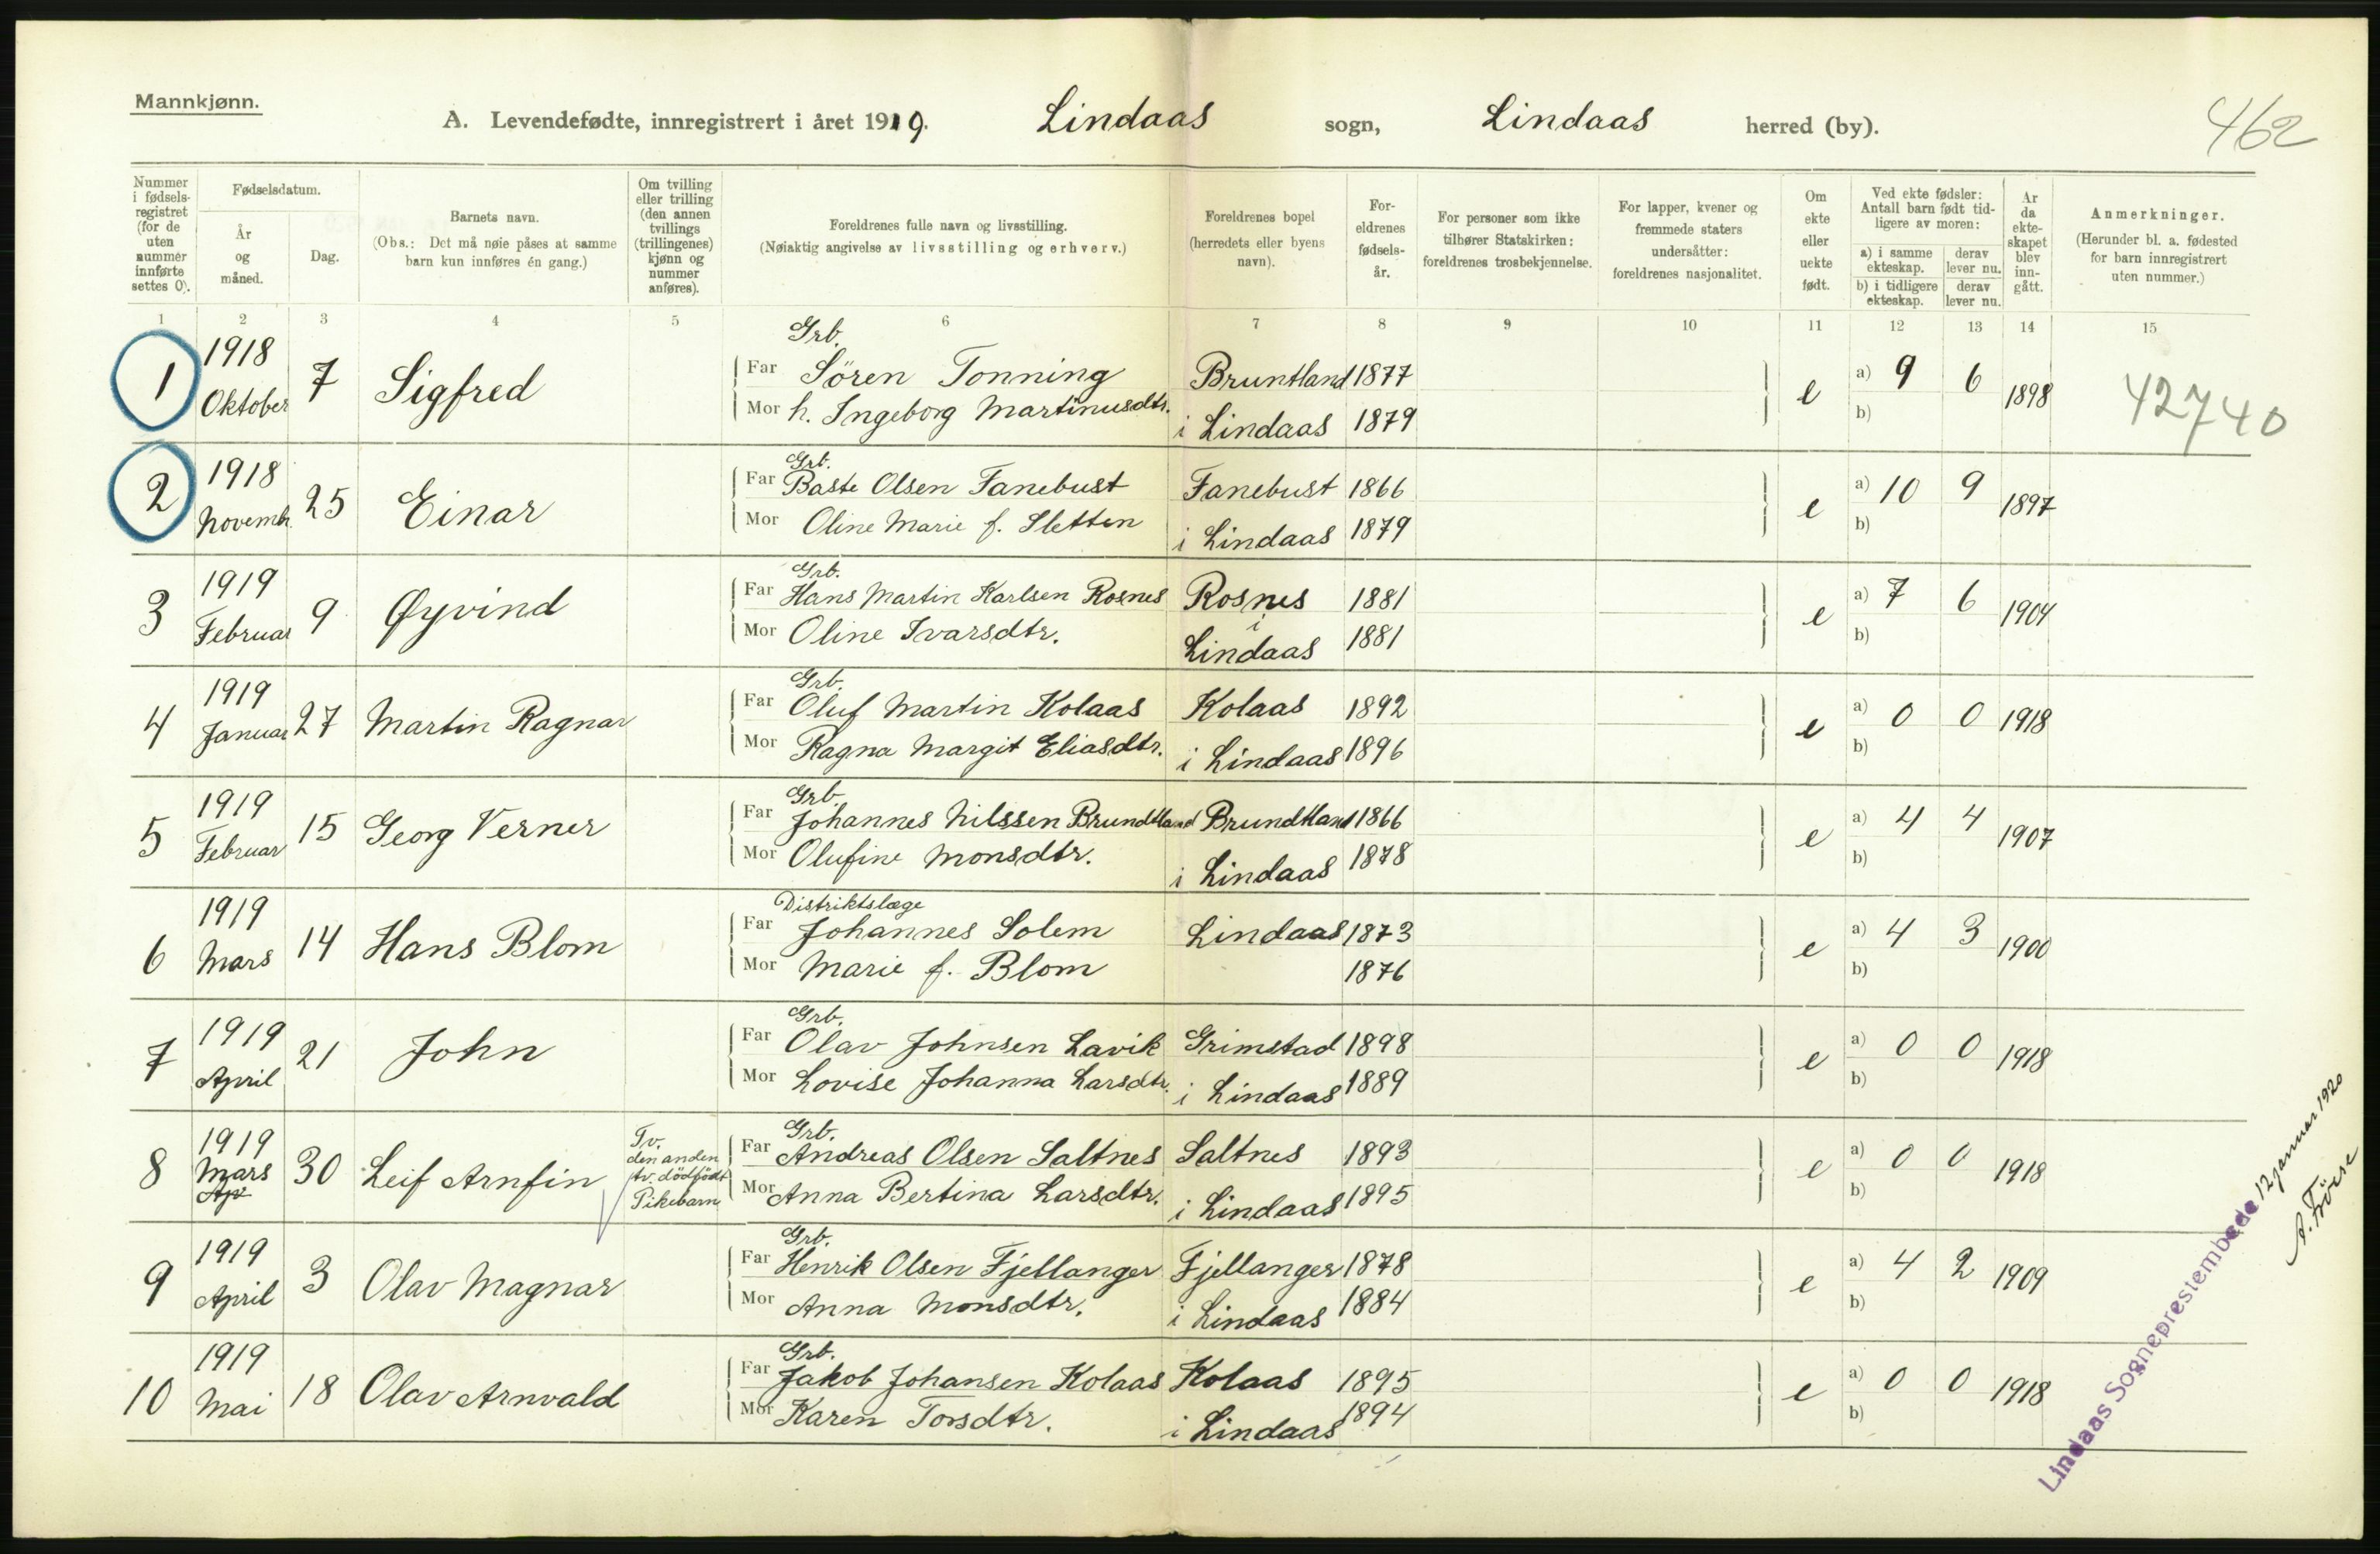 Mannkjønn.
A. Levendefødte, innregistrert i året 1919. Lindaas sogn, Lindaas herred (by).
462
Nummer i fødselsregistret (for de uten nummer innførte settes 0).
Fødselsdatum.
År og måned.
Dag.
Barnets navn.
(Obs.: Det må nøie påses at samme barn kun innføres én gang.)
Om tvilling eller trilling (den annen tvillings (trillingenes) kjønn og nummer anføres).
Foreldrenes fulle navn og livsstilling.
(Nøiaktig angivelse av livsstilling og erhverv.)
Foreldrenes bopel (herredets eller byens navn).
Foreldrenes fødselsår.
For personer som ikke tilhører Statskirken: foreldrenes trosbekjennelse.
For lapper, kvener og fremmede staters undersåtter: foreldrenes nasjonalitet.
Om ekte eller uekte født.
Ved ekte fødsler: Antall barn født tidligere av moren:
a) i samme ekteskap. derav lever nu.
b) i tidligere ekteskap. derav lever nu.
År da ekteskapet blev inngått.
Anmerkninger.
(Herunder bl. a. fødested for barn innregistrert uten nummer.)
1 2 3 4 5 6 7 8 9 10 11 12 13 14 15
1 1918 Oktober 7 Sigfred
Grb.
Far Sören Tonning Bruntland 1877
Mor h. Ingeborg Martinusdtr. i Lindaas 1879
e a) 9 6 1898
b)
42740
2 1918 Novembr. 25 Einar
Grb.
Far Baste Olsen Fanebust Fanebust 1866
Mor Oline Marie f. Sletten i Lindaas 1879
e a) 10 9 1897
b)
3 1919 Februar 9 Øyvind
Grb.
Far Hans Martin Karlsen Rosnes Rosnes 1881
Mor Oline Ivarsdtr. i Lindaas 1881
e a) 7 6 1904
b)
4 1919 Januar 27 Martin Ragnar
Grb.
Far Oluf Martin Kolaas Kolaas 1892
Mor Ragna Margit Eliasdtr. i Lindaas 1896
e a) 0 0 1918
b)
5 1919 Februar 15 Georg Verner
Grb.
Far Johannes Nilssen Brundtland Brundtland 1866
Mor Olufine Monsdtr. i Lindaas 1878
e a) 4 4 1907
b)
6 1919 Mars 14 Hans Blom
Distriktslæge
Far Johannes Solem Lindaas 1873
Mor Marie f. Blom 1876
e a) 4 3 1900
b)
7 1919 April 21 John
Grb.
Far Olav Johnsen Lavik Grimstad 1898
Mor Lovise Johanna Larsdtr. i Lindaas 1889
e a) 0 0 1918
b)
8 1919 Mars Ap 30 Leif Arnfin
Tv. den anden tv. dödfödt Pikebarn
Grb.
Far Andreas Olsen Saltnes Saltnes 1893
Mor Anna Bertina Larsdtr. i Lindaas 1895
e a) 0 0 1918
b)
9 1919 April 3 Olav Magnar
Grb.
Far Henrik Olsen Fjellanger Fjellanger 1878
Mor Anna Monsdtr. i Lindaas 1884
e a) 4 2 1909
b)
10 1919 Mai 18 Olav Arnvald
Grb.
Far Jakob Johansen Kolaas Kolaas 1895
Mor Karen Torsdtr. i Lindaas 1894
e a) 0 0 1918
b)
Lindaas Sogneprestembede 12 januar 1920